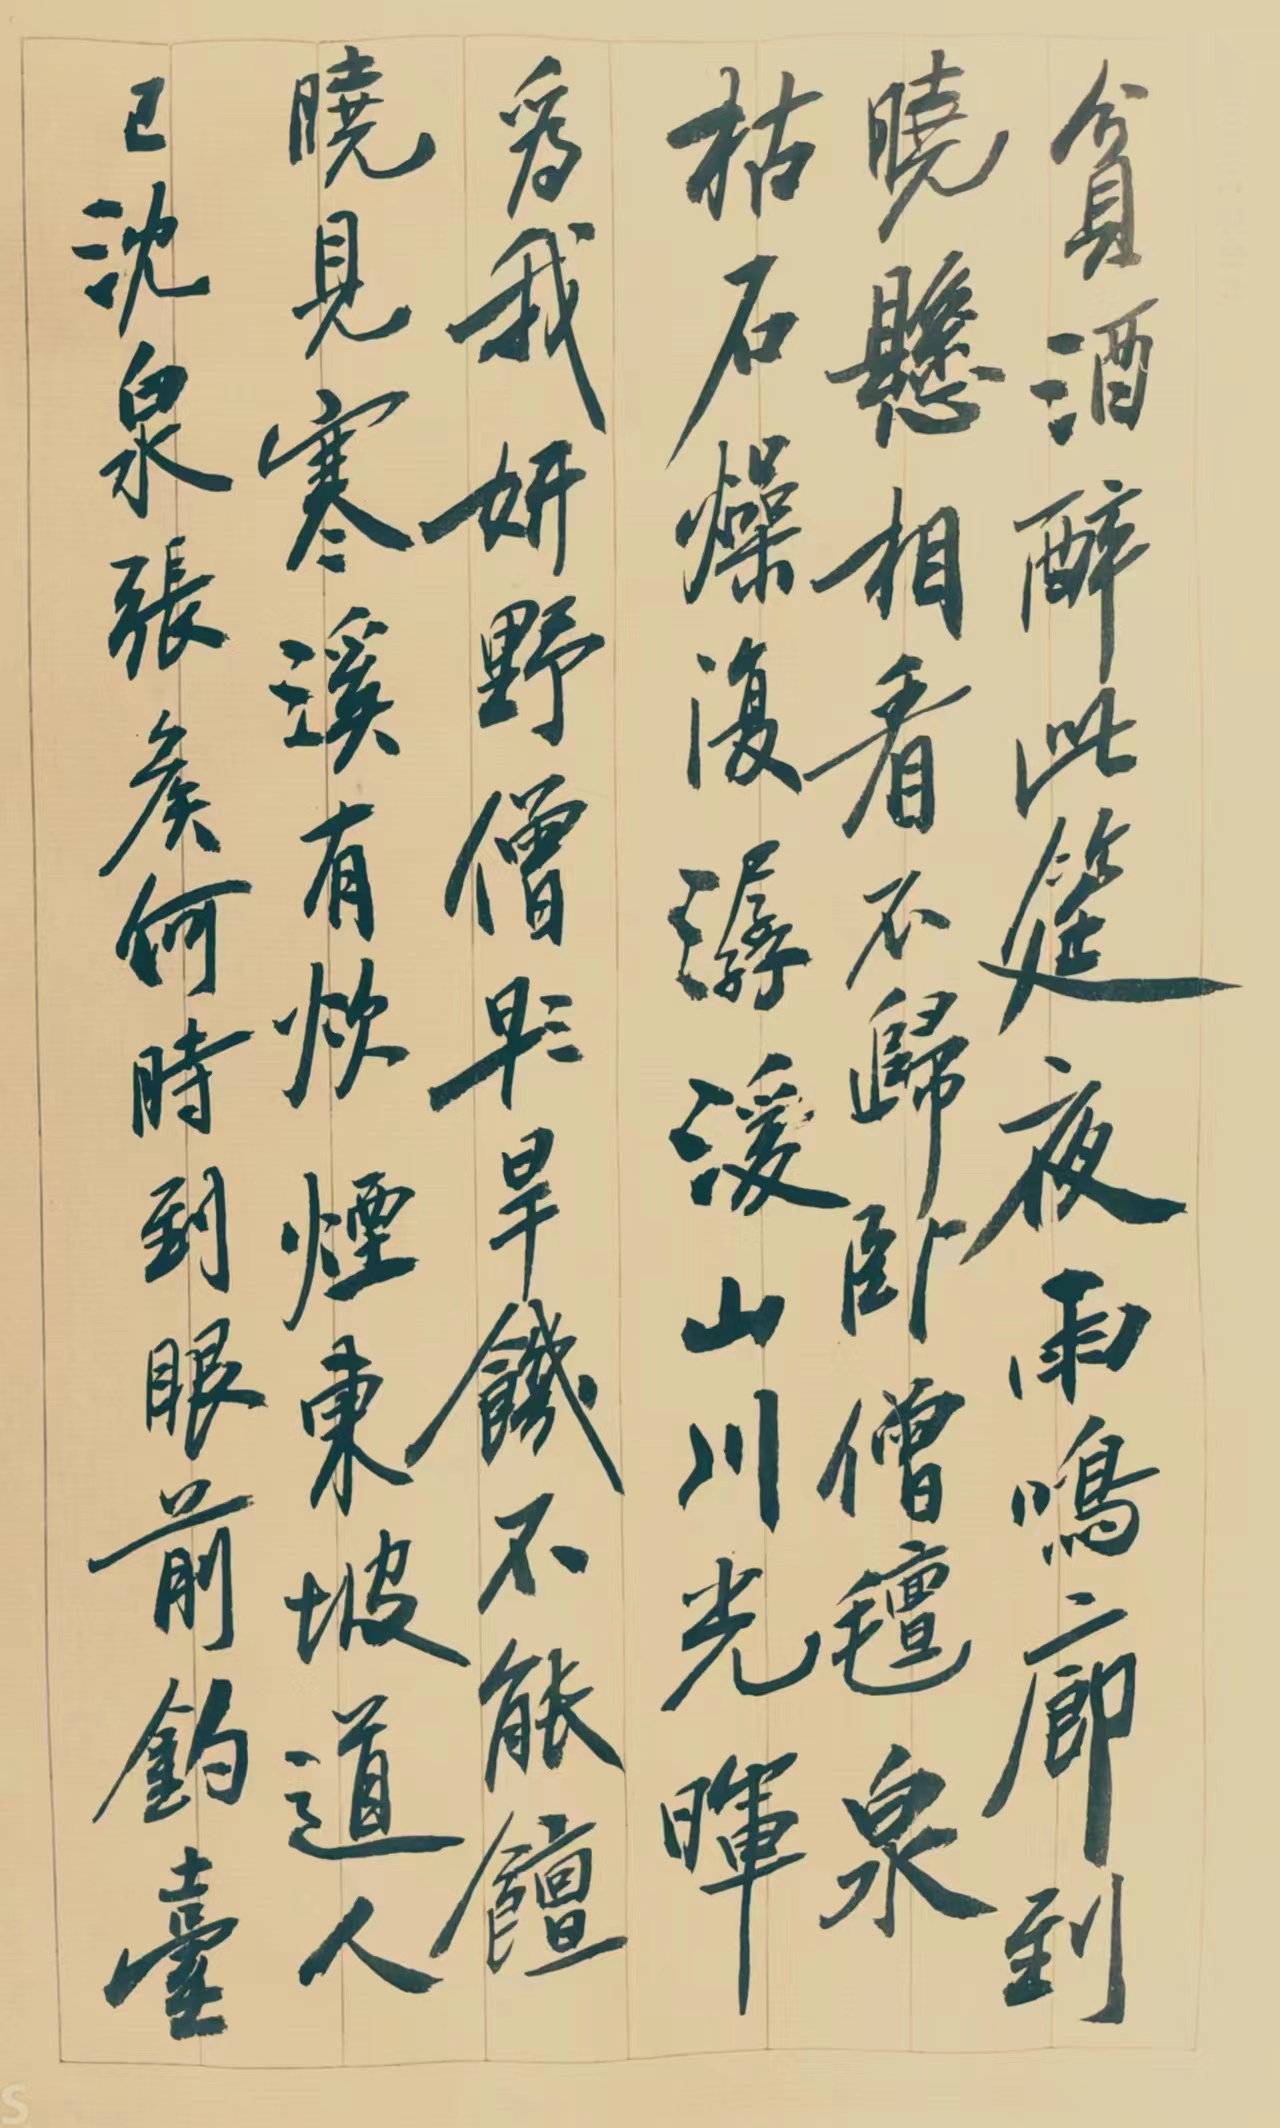 貧酒醉此筵夜雨鳴廊到
曉懸相看不歸臥僧氊泉
枯石燥復潺湲山川光暉
為我妍野僧旱旱饑不能饘
曉見寒溪有炊煙東坡道人
已沈泉張矦何時到眼前釣臺